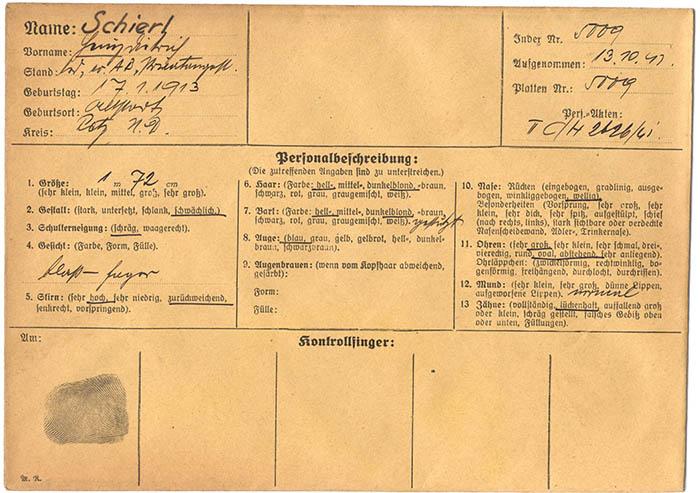 Name: Schierl
Vorname:
Stand:
Geburtstag: 17.1.1913
Geburtsort:
Kreis:
Index Nr. 5009
Aufgenommen: 13.10.41
Platten Nr.: 5009
Pers.-Akten:
II 2626/41
Personalbeschreibung:
(Die zutreffenden Angaben sind zu unterstreichen.)
1. Größe: 1 m 72 cm
(sehr klein, klein, mittel, groß, sehr groß).
2. Gestalt: (stark, untersetzt, schlank, schwächlich.)
3. Schulterneigung: (schräg, waagerecht).
4. Gesicht: (Farbe, Form, Fülle).
blaß – hager
5. Stirn: (sehr hoch, sehr niedrig, zurückweichend,
senkrecht, vorspringend).
6. Haar: (Farbe: hell-, mittel-, dunkelblond, -braun,
schwarz, rot, grau, graugemischt, weiß).
7. Bart: (Farbe: hell-, mittel-, dunkelblond, -braun,
schwarz, rot, grau, graugemischt, weiß). gestutzt
8. Auge: (blau, grau, gelb, gelbrot, hell-, dunkel-
braun, schwarzbraun).
9. Augenbrauen: (wenn vom Kopfhaar abweichend,
gefärbt):
Form:
Fülle:
10. Nase: Rücken (eingebogen, gradlinig, ausge-
bogen, winkliggebogen, wellig).
Besonderheiten (Vorsprung, sehr groß, sehr
klein, sehr dick, sehr spitz, aufgestülpt, schief
(nach rechts, links), stark sichtbare oder verdeckte
Nasenscheidewand, Adler-, Trinkernase).
11. Ohren: (sehr groß, sehr klein, sehr schmal, drei-,
viereckig, rund, oval, abstehend, sehr anliegend).
Ohrläppchen: (zwickelförmig, rechtwinklig, bo-
genförmig, freihängend, durchlocht, durchrissen).
12. Mund: (sehr klein, sehr groß, dünne Lippen,
aufgeworfene Lippen). normal
13 Zähne: (vollständig, lückenhaft, auffallend groß
oder klein, schräg gestellt, falsches Gebiß oben
oder unten, Füllungen).
Am:
Kontrollfinger:
M. R.